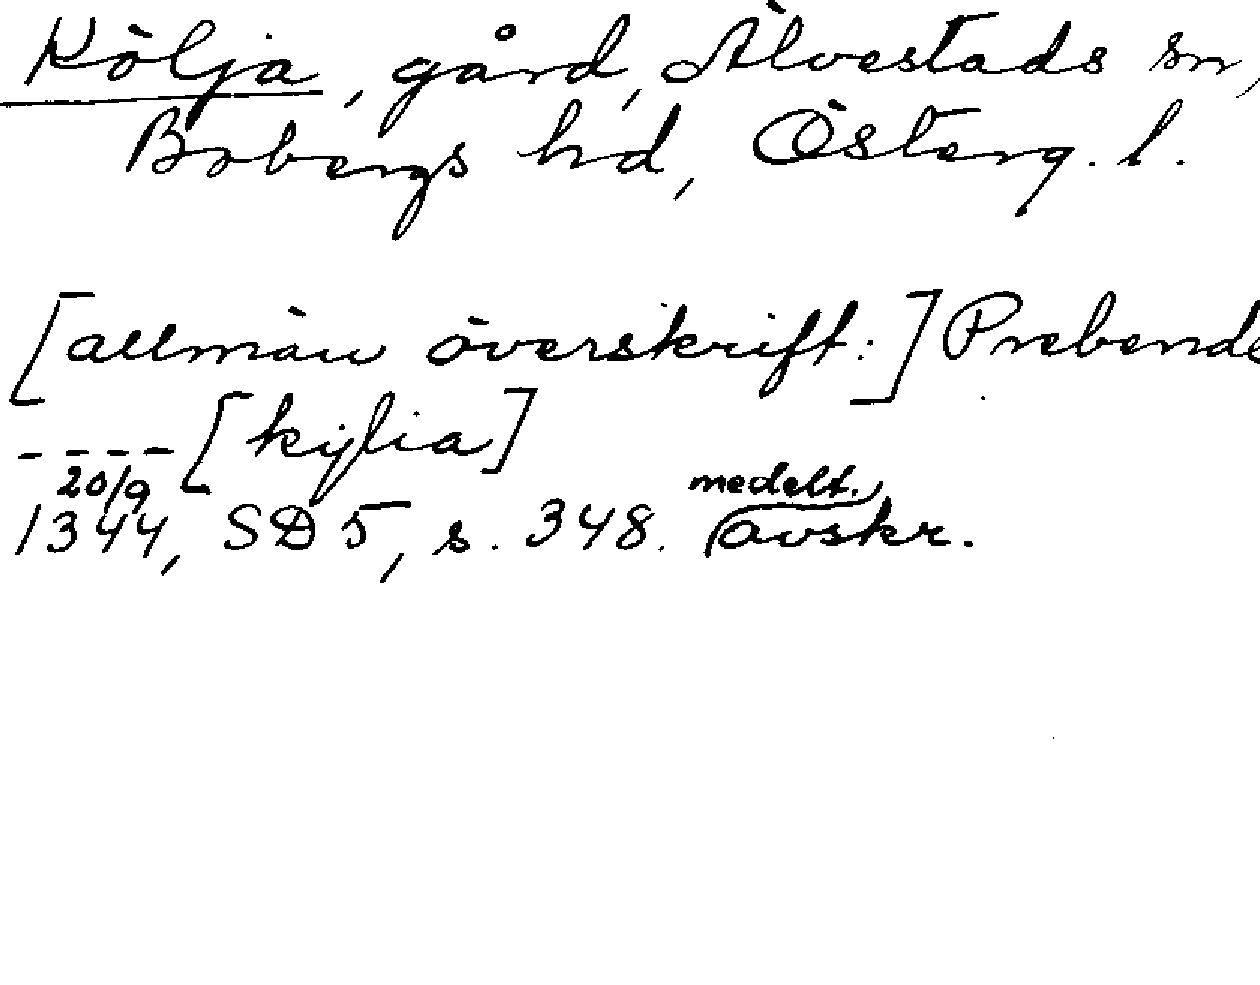 Kölja, gård, Älvestads sn,
Bobergs hd, Österg. l.
[allmän överskrift:] Prebende
- - - - [kylia]
20/9 medelt.
1344, SD 5, s. 348. avskr.